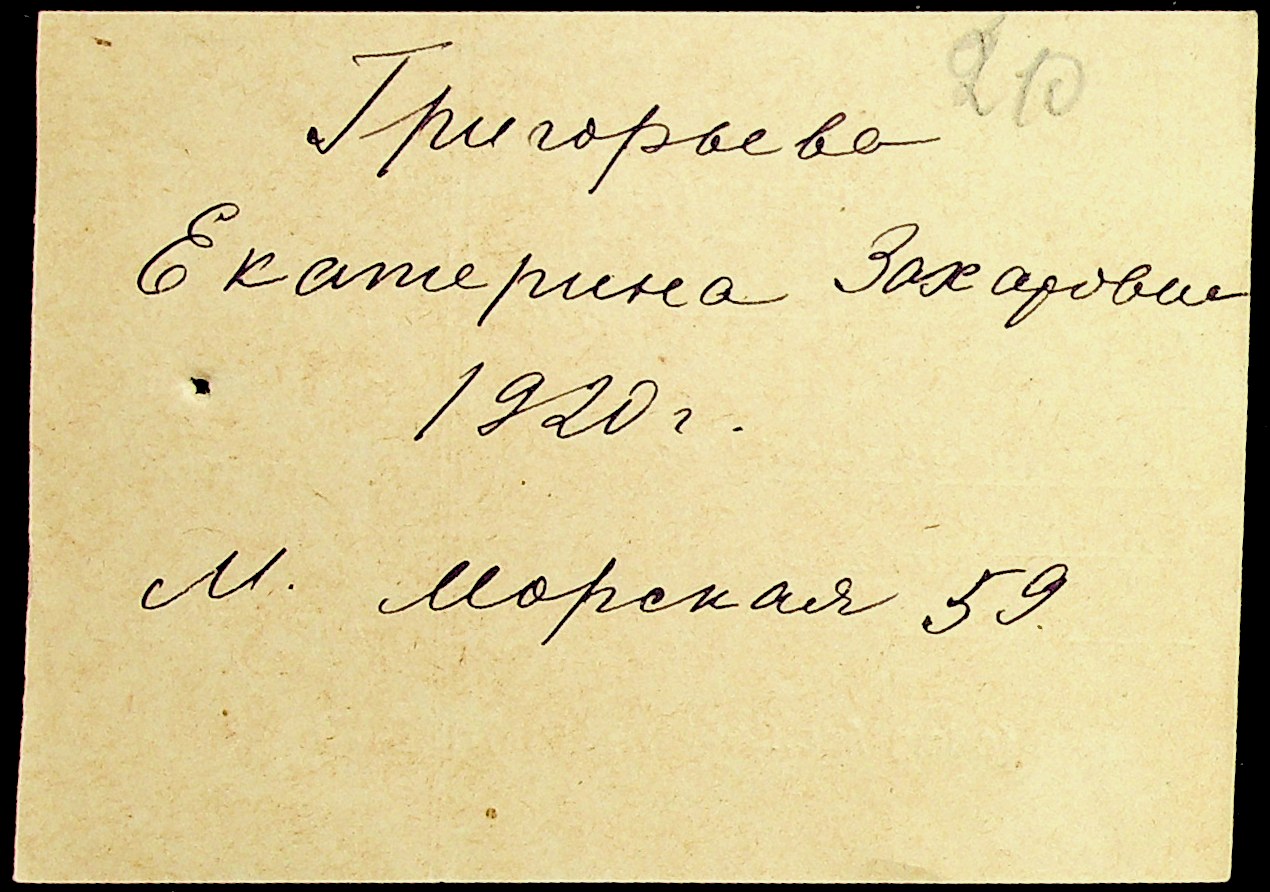 210
Григорьева
Екатерина Захаровн
1920 г.
М. Морская 59